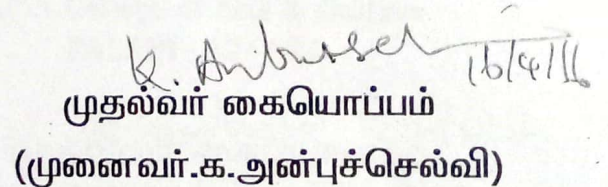 K. Anbuselvi 16/4/16
முதல்வர் கையொப்பம்
(முனைவர்.க.அன்புச்செல்வி)